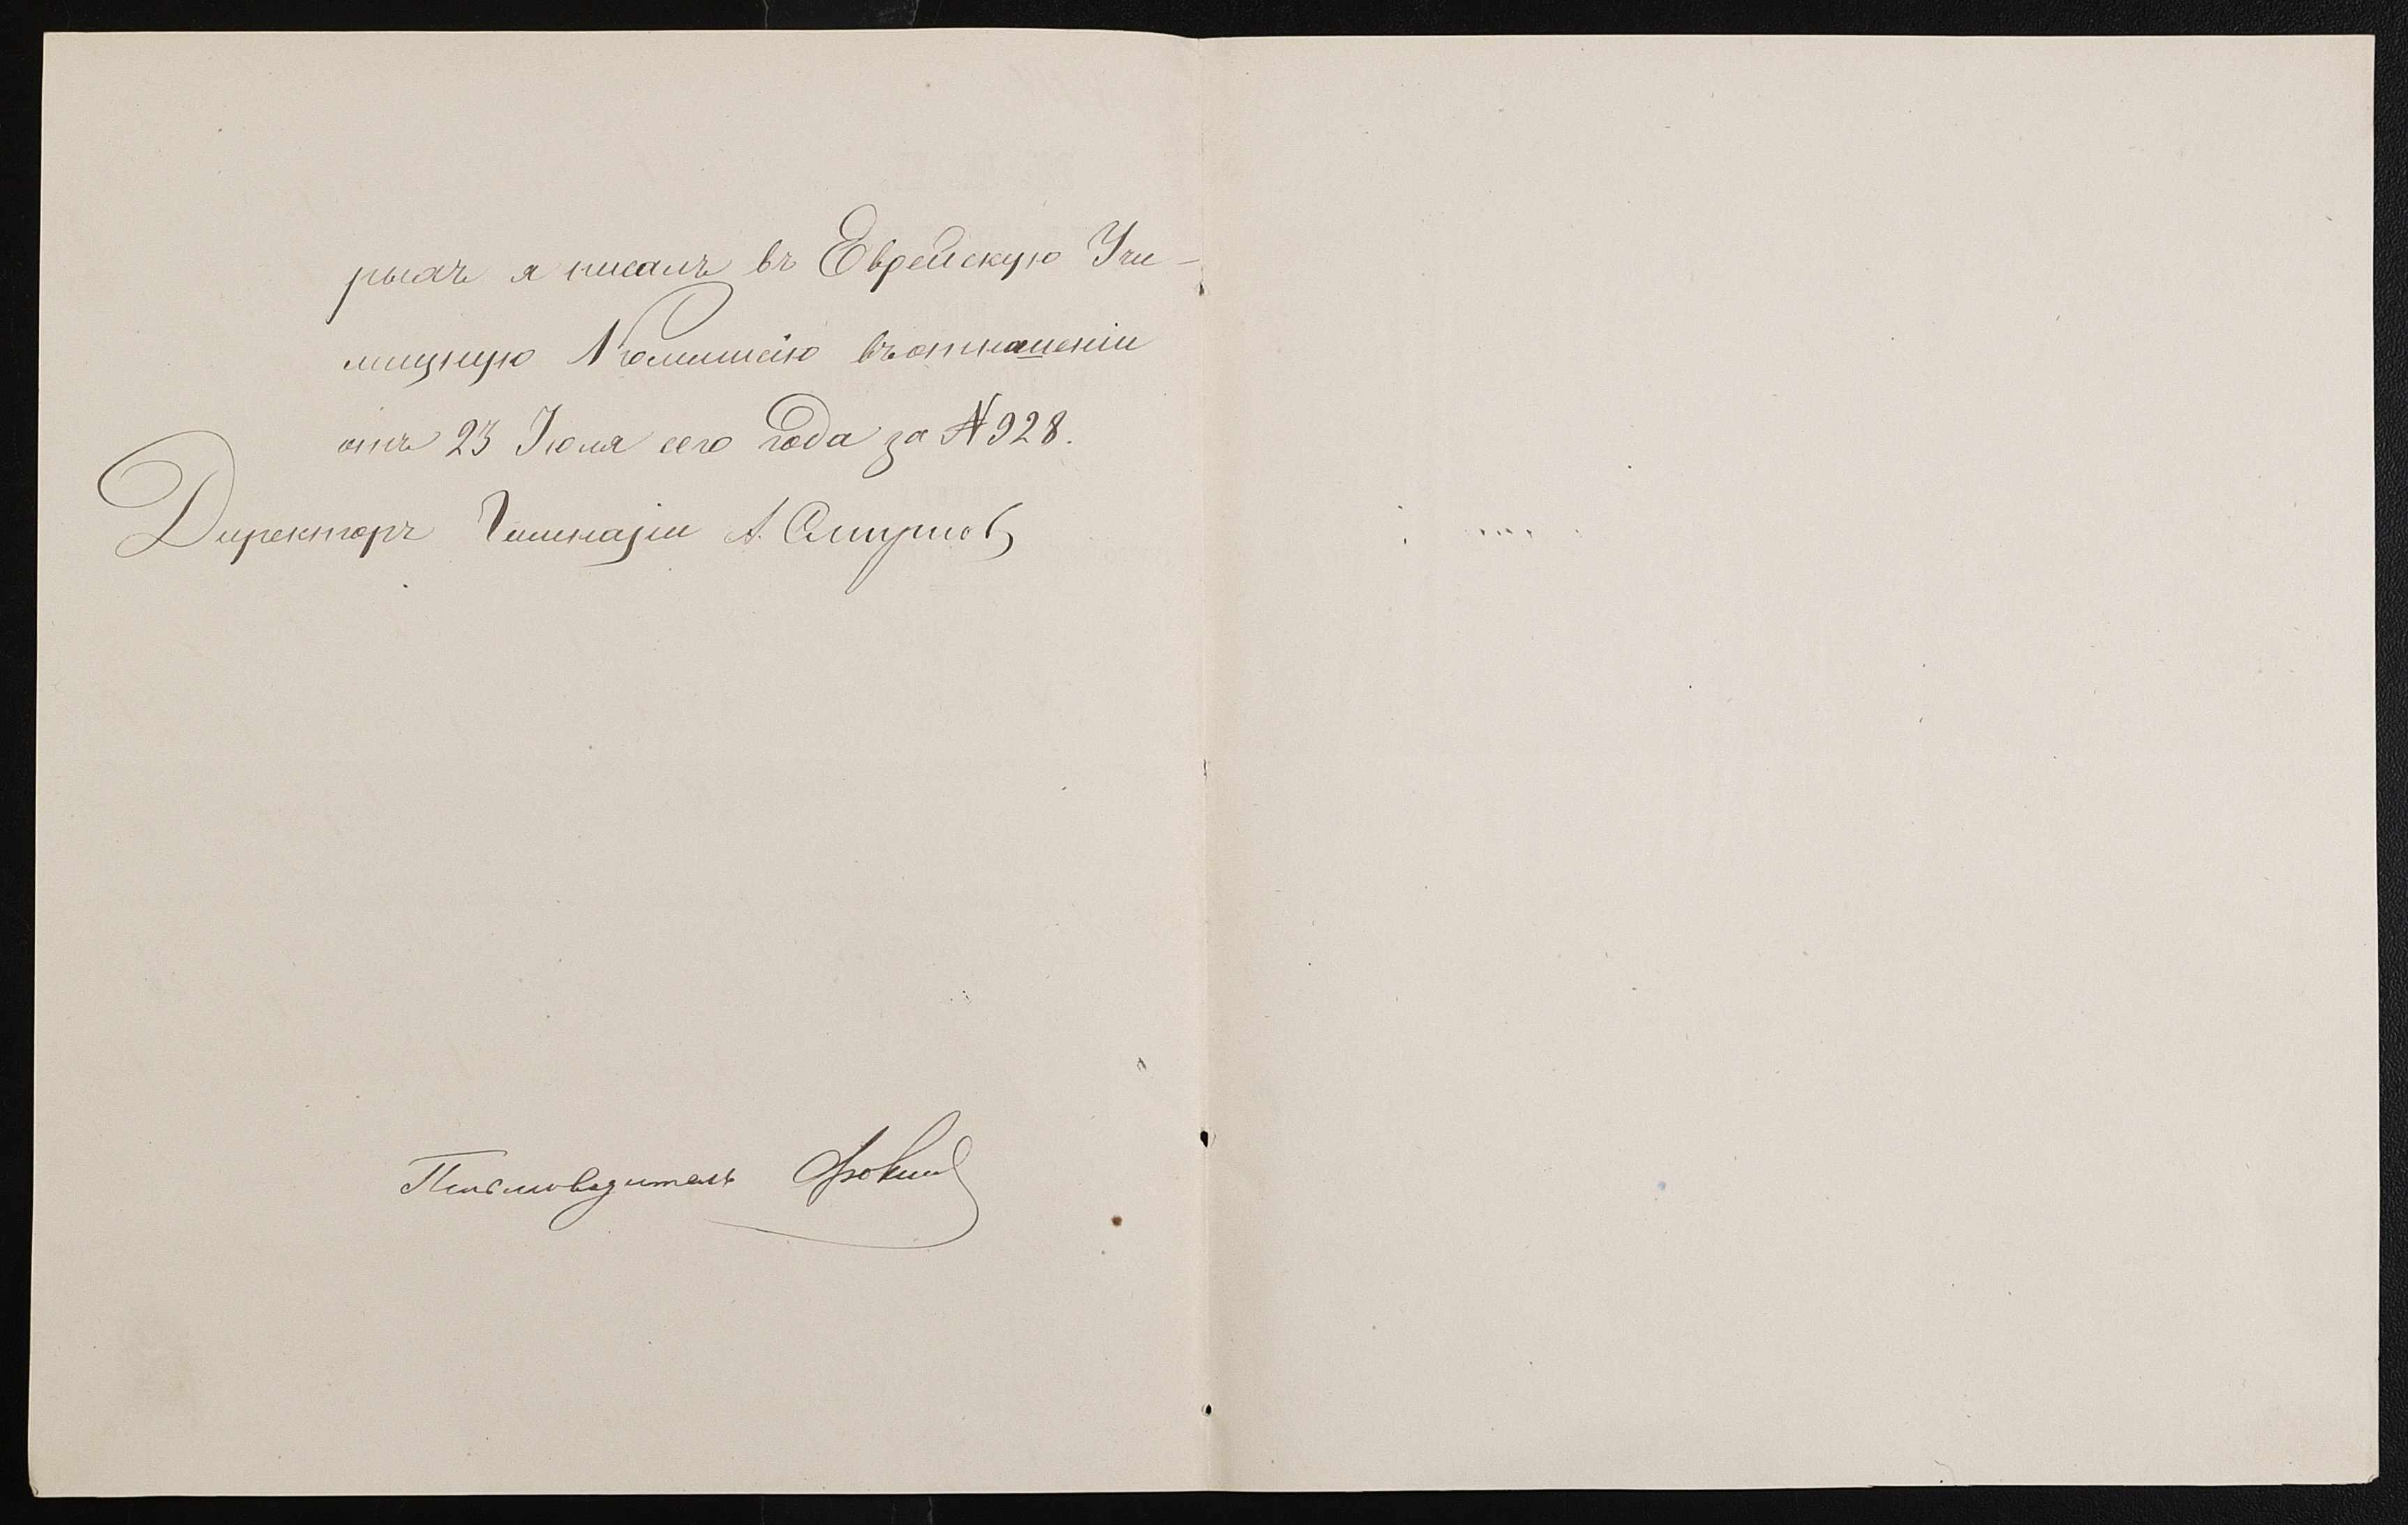 рыхъ я писалъ въ Еврейскую Учи-
лищную Коммисію въ отношеніи
отъ 23 Іюля сего года за № 928.
Директоръ Гимназіи А. Смирновъ
Письмоводитель